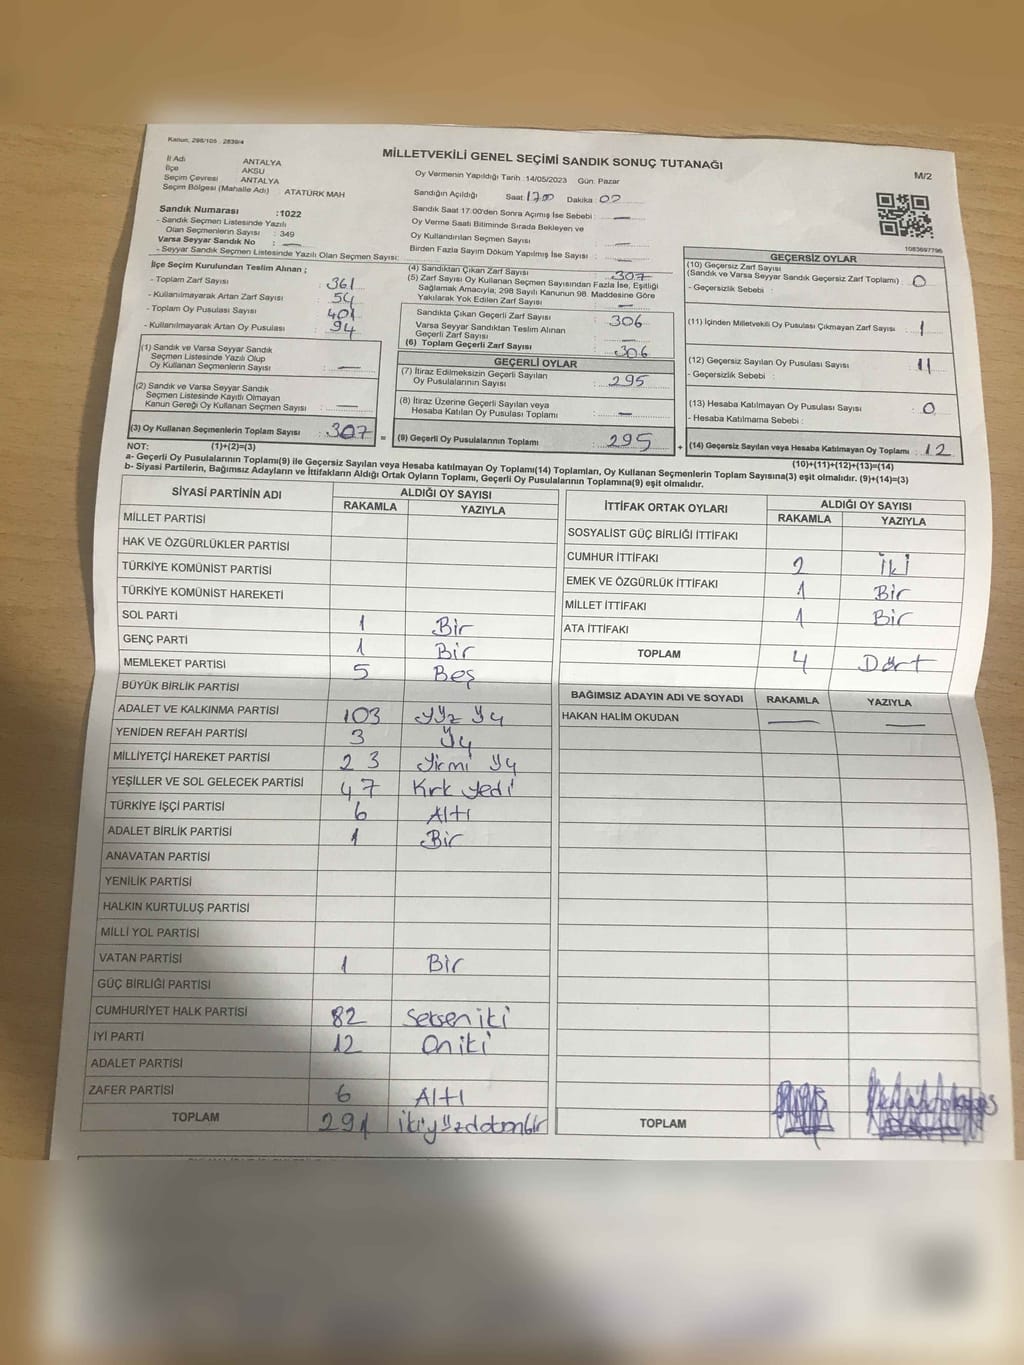 Kanun: 298/105 2839/4
MİLLETVEKİLİ GENEL SEÇİMİ SANDIK SONUÇ TUTANAĞI
M/2
İl Adı ANTALYA
İlçe AKSU
Seçim Çevresi ANTALYA
Seçim Bölgesi (Mahalle Adı) : ATATÜRK MAH
Oy Vermenin Yapıldığı Tarih :14/05/2023 Gün: Pazar
Sandığın Açıldığı Saat: 17.00 Dakika: 00
Sandık Saat 17.00'den Sonra Açımış İse Sebebi : —
Oy Verme Saati Bitiminde Sırada Bekleyen ve
Oy Kullandırılan Seçmen Sayısı : —
Birden Fazla Sayım Döküm Yapılmış İse Sayısı : —
1083697796
Sandık Numarası :1022
- Sandık Seçmen Listesinde Yazılı
Olan Seçmenlerin Sayısı : 349
Varsa Seyyar Sandık No : —
- Seyyar Sandık Seçmen Listesinde Yazılı Olan Seçmen Sayısı:
İlçe Seçim Kurulundan Teslim Alınan ;
- Toplam Zarf Sayısı : 361
- Kullanılmayarak Artan Zarf Sayısı : 54
- Toplam Oy Pusulası Sayısı : 401
- Kullanılmayarak Artan Oy Pusulası : 94
(1) Sandık ve Varsa Seyyar Sandık
Seçmen Listesinde Yazılı Olup
Oy Kullanan Seçmenlerin Sayısı : —
(2) Sandık ve Varsa Seyyar Sandık
Seçmen Listesinde Kayıtlı Olmayan
Kanun Gereği Oy Kullanan Seçmen Sayısı : —
(3) Oy Kullanan Seçmenlerin Toplam Sayısı : 307
(4) Sandıktan Çıkan Zarf Sayısı : 307
(5) Zarf Sayısı Oy Kullanan Seçmen Sayısından Fazla İse, Eşitliği
Sağlamak Amacıyla, 298 Sayılı Kanunun 98. Maddesine Göre
Yakılarak Yok Edilen Zarf Sayısı : —
Sandıkta Çıkan Geçerli Zarf Sayısı : 306
Varsa Seyyar Sandıktan Teslim Alınan
Geçerli Zarf Sayısı : —
(6) Toplam Geçerli Zarf Sayısı : 306
GEÇERLİ OYLAR
(7) İtiraz Edilmeksizin Geçerli Sayılan
Oy Pusulalarının Sayısı : 295
(8) İtiraz Üzerine Geçerli Sayılan veya
Hesaba Katılan Oy Pusulası Toplamı : —
= (9) Geçerli Oy Pusulalarının Toplamı : 295 +
GEÇERSİZ OYLAR
(10) Geçersiz Zarf Sayısı
(Sandık ve Varsa Seyyar Sandık Geçersiz Zarf Toplamı) : 0
- Geçersizlik Sebebi :
(11) İçinden Milletvekili Oy Pusulası Çıkmayan Zarf Sayısı : 1
(12) Geçersiz Sayılan Oy Pusulası Sayısı : 11
- Geçersizlik Sebebi :
(13) Hesaba Katılmayan Oy Pusulası Sayısı : 0
- Hesaba Katılmama Sebebi :
(14) Geçersiz Sayılan veya Hesaba Katılmayan Oy Toplamı : 12
NOT: (1)+(2)=(3)
(10)+(11)+(12)+(13)=(14)
a- Geçerli Oy Pusulalarının Toplamı(9) ile Geçersiz Sayılan veya Hesaba katılmayan Oy Toplamı(14) Toplamları, Oy Kullanan Seçmenlerin Toplam Sayısına(3) eşit olmalıdır. (9)+(14)=(3)
b- Siyasi Partilerin, Bağımsız Adayların ve İttifakların Aldığı Ortak Oyların Toplamı, Geçerli Oy Pusulalarının Toplamına(9) eşit olmalıdır.
SİYASİ PARTİNİN ADI ALDIĞI OY SAYISI
RAKAMLA YAZIYLA
MİLLET PARTİSİ
HAK VE ÖZGÜRLÜKLER PARTİSİ
TÜRKİYE KOMÜNİST PARTİSİ
TÜRKİYE KOMÜNİST HAREKETİ
SOL PARTİ 1 Bir
GENÇ PARTİ 1 Bir
MEMLEKET PARTİSİ 5 Beş
BÜYÜK BİRLİK PARTİSİ
ADALET VE KALKINMA PARTİSİ 103 yüz üç
YENİDEN REFAH PARTİSİ 3 üç
MİLLİYETÇİ HAREKET PARTİSİ 23 yirmi üç
YEŞİLLER VE SOL GELECEK PARTİSİ 47 Kırk yedi
TÜRKİYE İŞÇİ PARTİSİ 6 Altı
ADALET BİRLİK PARTİSİ 1 Bir
ANAVATAN PARTİSİ
YENİLİK PARTİSİ
HALKIN KURTULUŞ PARTİSİ
MİLLİ YOL PARTİSİ
VATAN PARTİSİ 1 Bir
GÜÇ BİRLİĞİ PARTİSİ
CUMHURİYET HALK PARTİSİ 82 Seksen iki
İYİ PARTİ 12 On iki
ADALET PARTİSİ
ZAFER PARTİSİ 6 Altı
TOPLAM 291
İTTİFAK ORTAK OYLARI ALDIĞI OY SAYISI
RAKAMLA YAZIYLA
SOSYALİST GÜÇ BİRLİĞİ İTTİFAKI
CUMHUR İTTİFAKI 2 İki
EMEK VE ÖZGÜRLÜK İTTİFAKI 1 Bir
MİLLET İTTİFAKI 1 Bir
ATA İTTİFAKI
TOPLAM 4 Dört
BAĞIMSIZ ADAYIN ADI VE SOYADI RAKAMLA YAZIYLA
HAKAN HALİM OKUDAN — —
TOPLAM